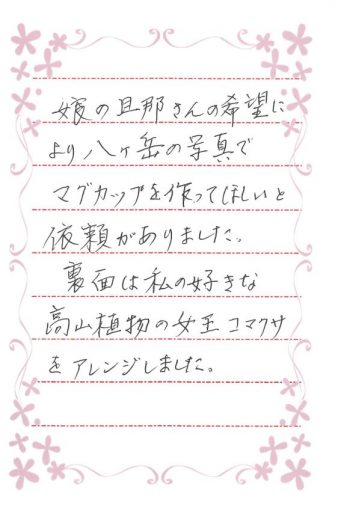 娘の旦那さんの希望に
より八ヶ岳の写真で
マグカップを作ってほしいと
依頼がありました。
裏面は私の好きな
高山植物の女王コマクサ
をアレンジしました。